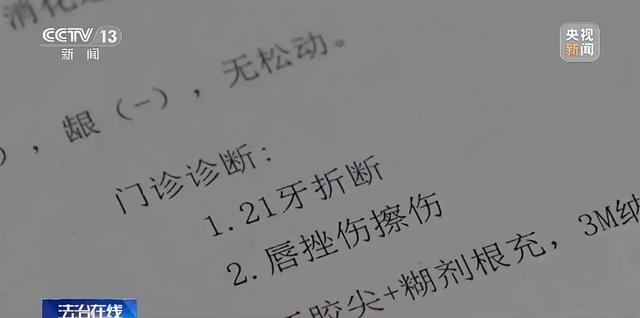 消化道
CCTV 13
新闻
央视
新闻
），龈（-），无松动。
门诊诊断：
1.21牙折断
2.唇挫伤擦伤
牙胶尖+糊剂根充，3M纳
法治在线